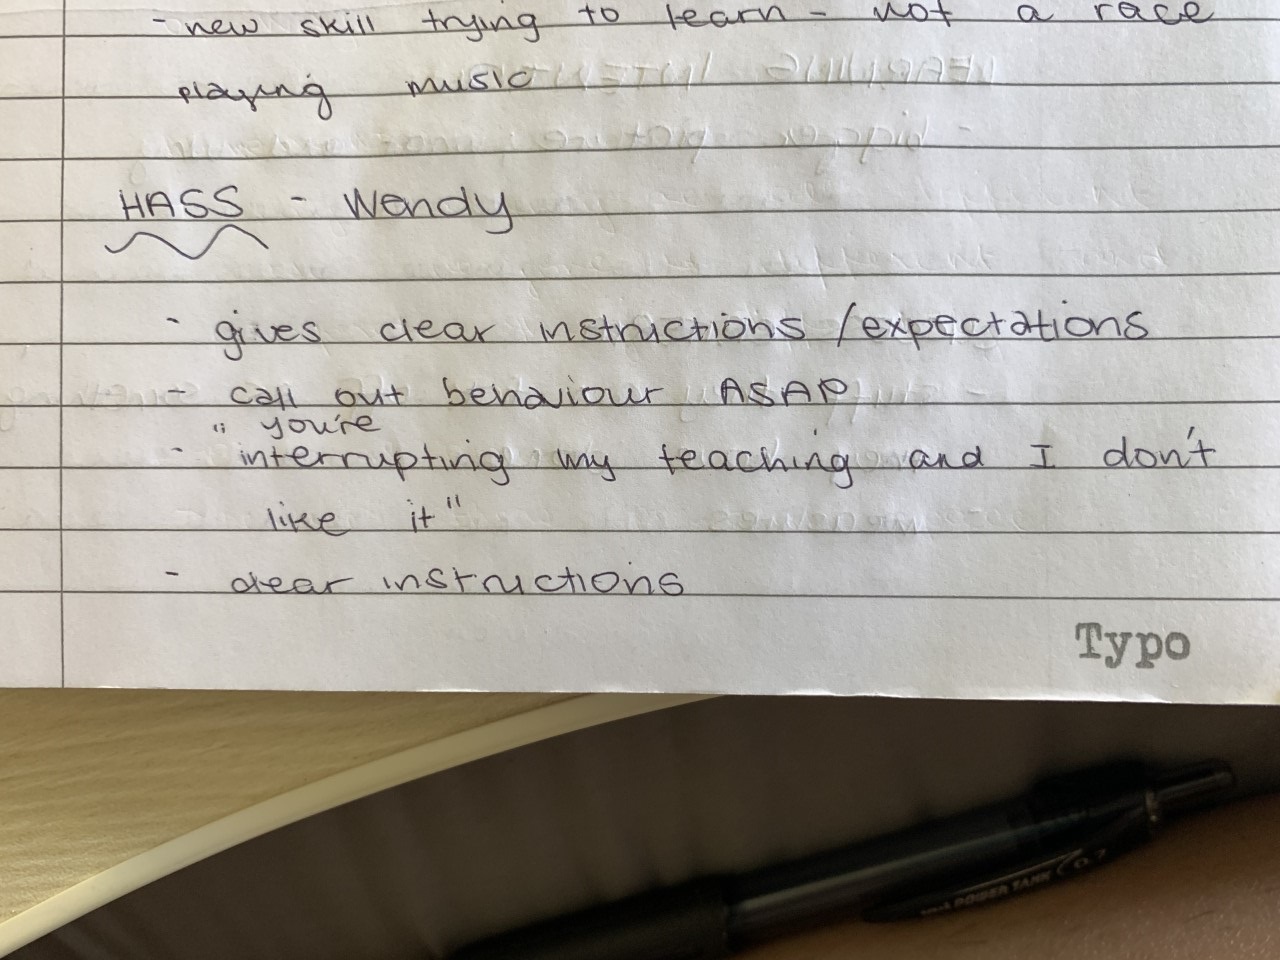 - new skill trying to learn - not a race
playing music
HASS - Wendy
- gives clear instructions /expectations
- call out behaviour ASAP
" you're
- interrupting my teaching and I don't
like it"
- clear instructions
Typo
POWER TANK 0.7